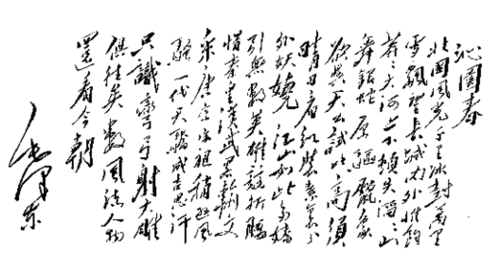 沁園春
北國風光千里冰封萬里
雪飄望長城內外惟餘
莽莽大河上下頓失滔滔山
舞銀蛇原驅臘象
欲與天公試比高須
晴日看紅裝素裹分
外妖嬈 江山如此多嬌
引無數英雄競折腰
惜秦皇漢武略輸文
采唐宗宋祖稍遜風
騷一代天驕成吉思汗
只識彎弓射大雕
俱往矣數風流人物
還看今朝
毛澤東